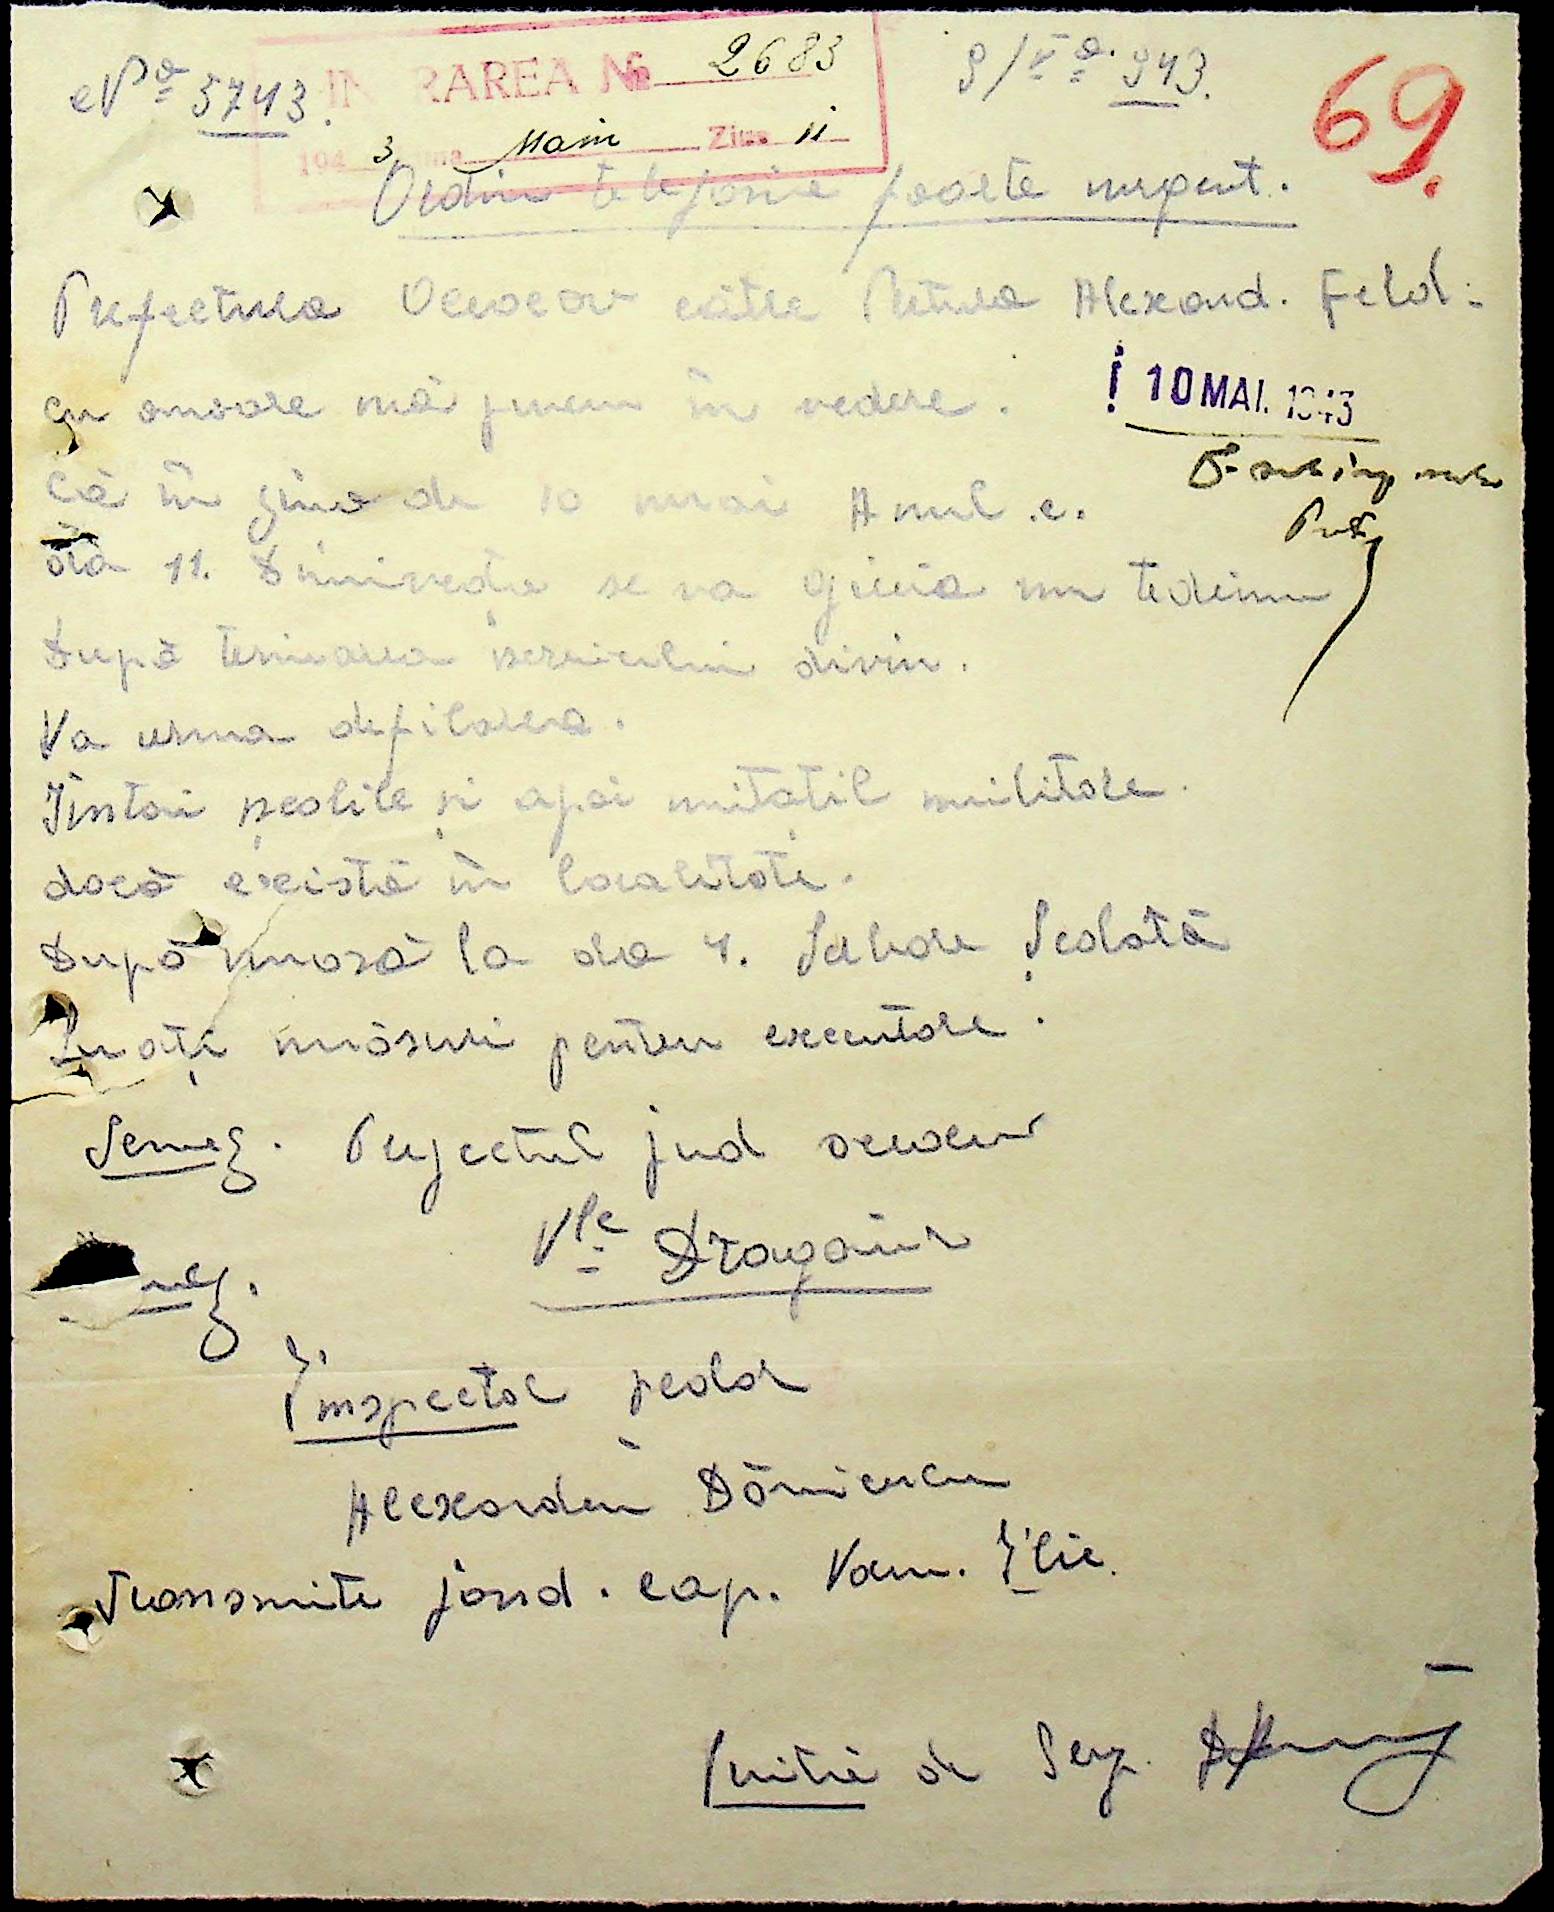 No 5743.
INTRAREA No 2683
9/V a. 943.
69.
194 3 Luna Main Ziua 11
Ordin telefonic foarte urgent.
Prefectura Oceacov către Pretura Alexand. Feld:
cu onoare vă punem în vedere.
! 10 MAI. 1943
Că în ziua de 10 mai Anul .c.
ora 11. Dimineața se va oficia un tedeum
După terminarea serviciului divin.
Va urma defilarea.
Întăi școlile și apoi unitățil militare.
dacă există în localitate.
După masă la ora 4. Serbare Școlară
Luați măsuri pentru executare.
Semnez. Prefectul jud oceacov
Vle Dragomir
nez.
Inspector școlar
Alexandru
Transmite jand. cap. Vam. Ilie.
Primite de Serg.